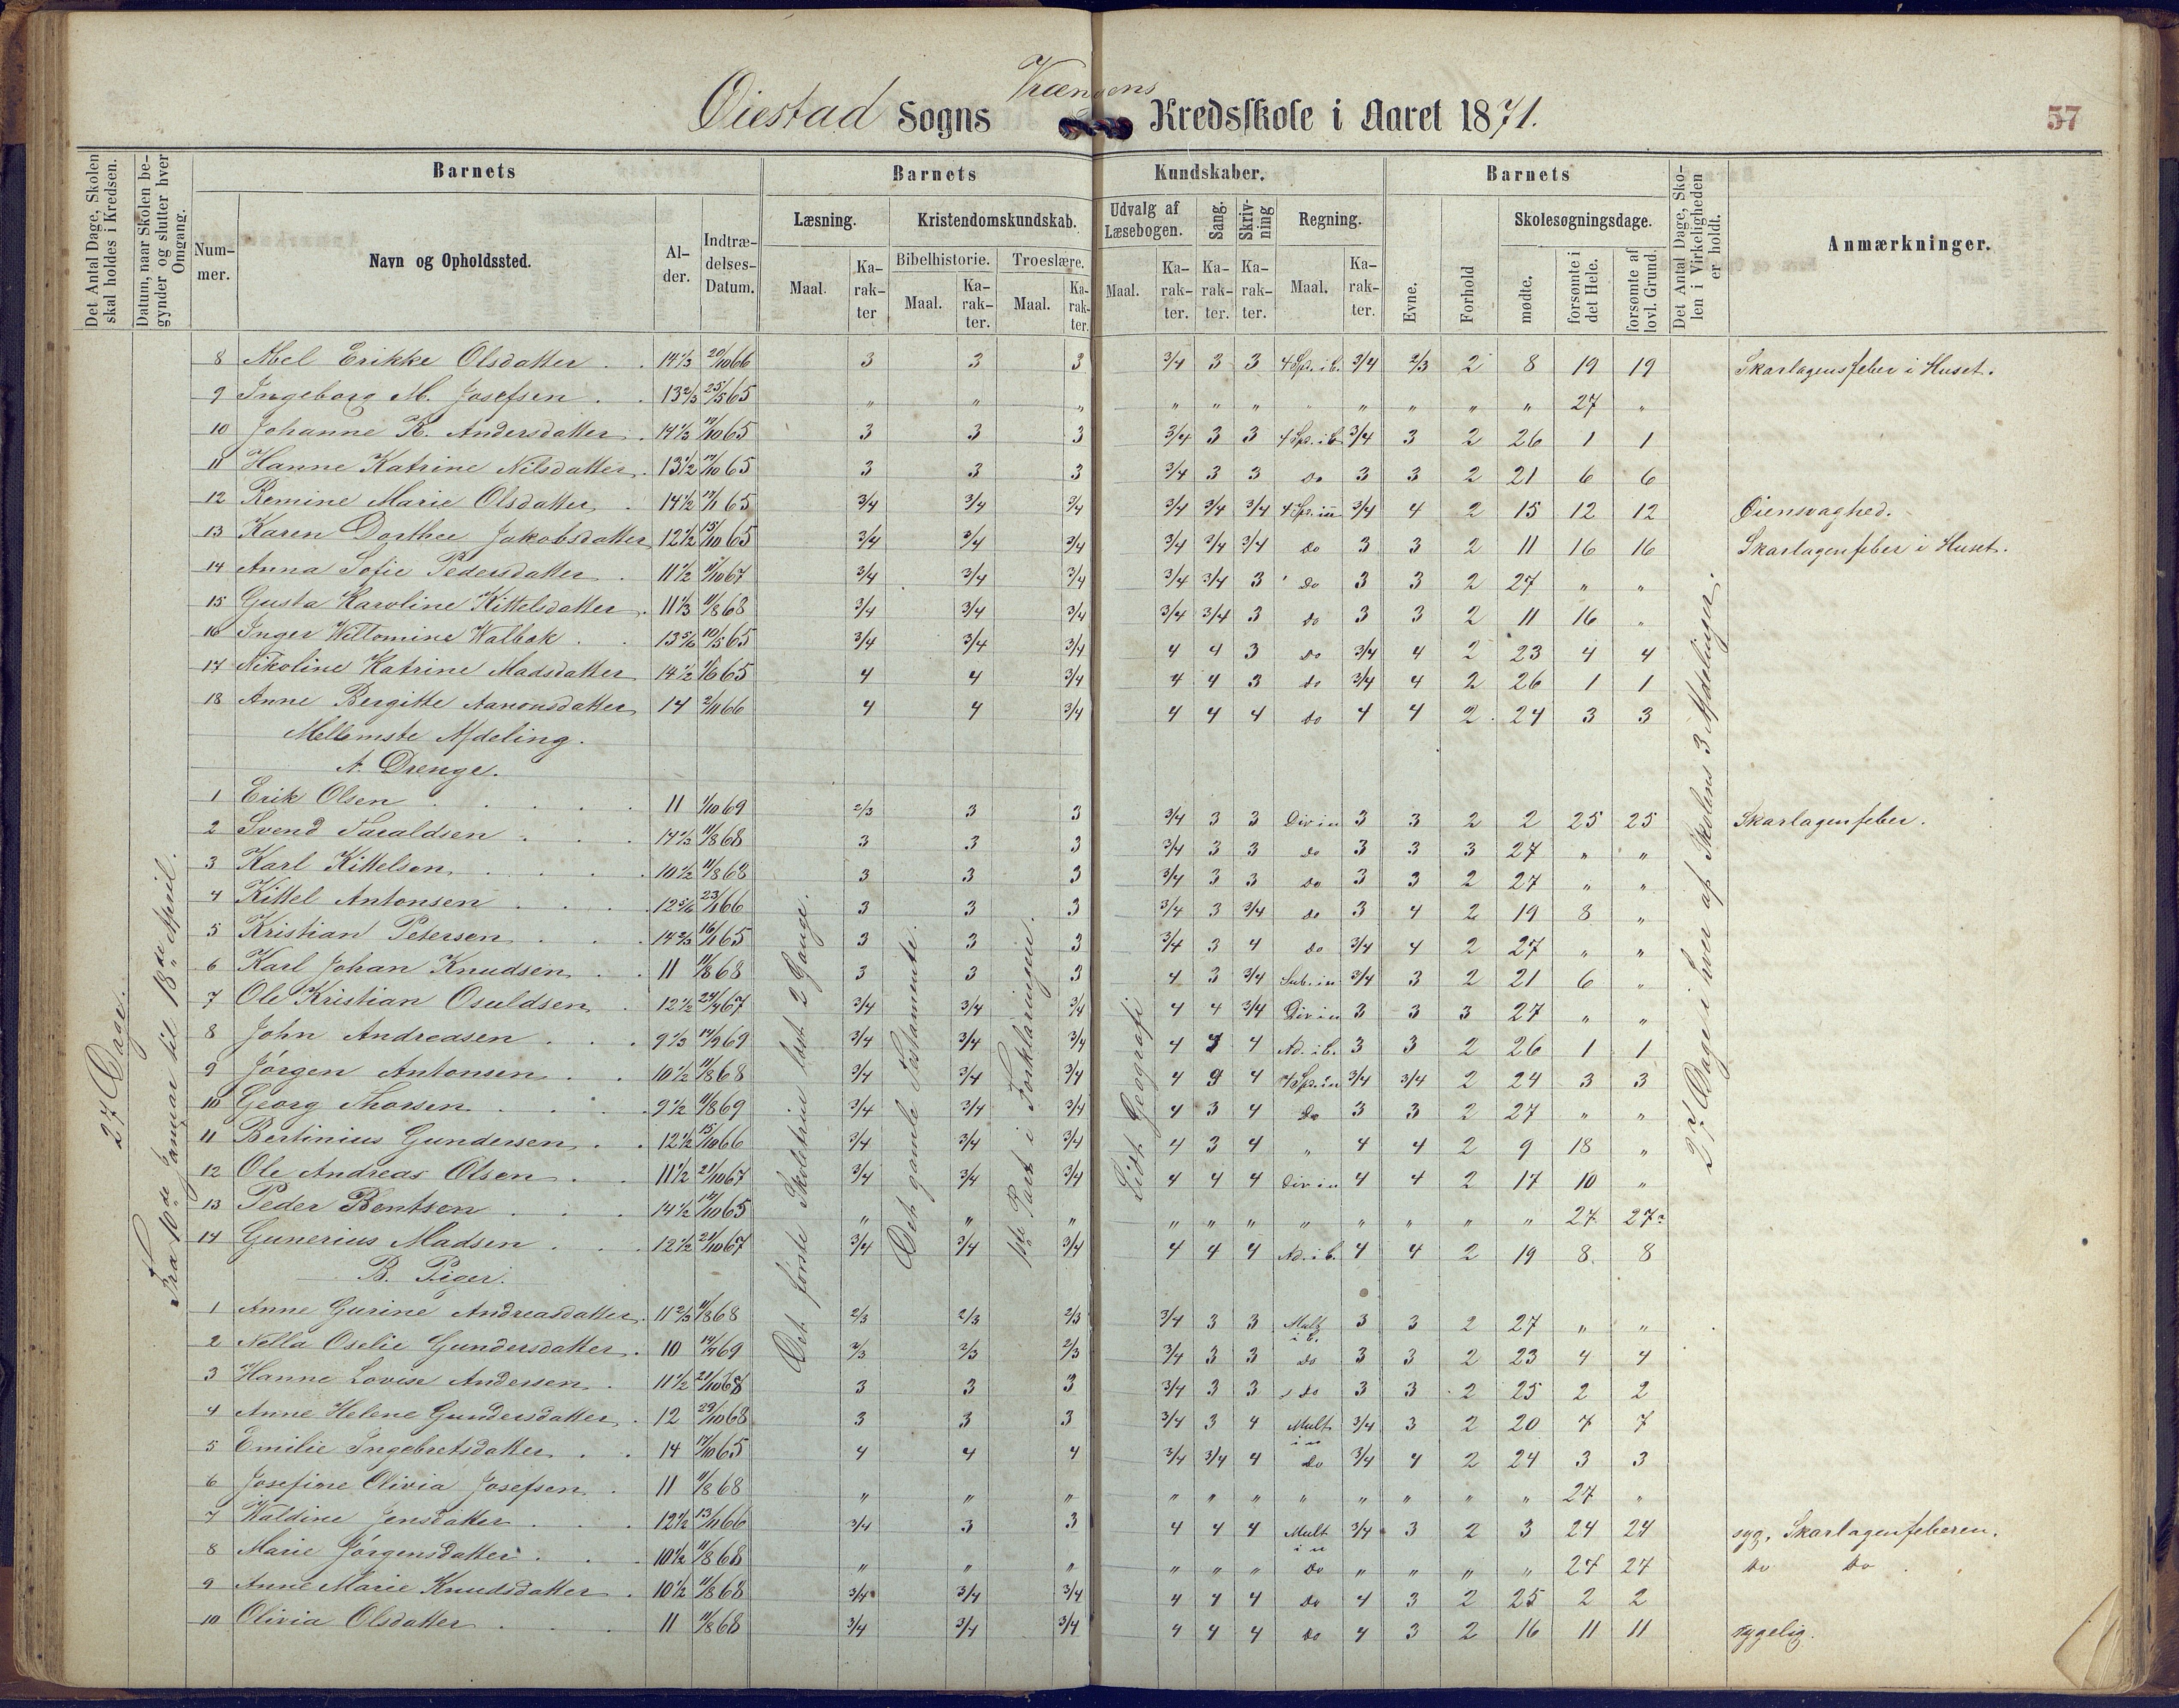 Øiestad Sogns Vrængens Kredsskole i Aaret 1871.
57
Det Antal Dage, Skolen skal holdes i Kredsen.
Datum, naar Skolen begynder og slutter hver Omgang.
Barnets
Nummer.
Navn og Opholdssted.
Alder.
Indtrædelses-Datum.
Barnets Kundskaber.
Læsning.
Maal.
Karakter
Kristendomskundskab.
Bibelhistorie.
Maal.
Karakter.
Troeslære.
Maal.
Karakter.
Udvalg af Læsebogen.
Maal.
Karakter.
Sang.
Karakter.
Skrivning
Karakter.
Regning.
Maal.
Karakter.
Barnets
Evne.
Forhold
Skolesøgningsdage.
mødte.
forsømte i det Hele.
forsømte af lovl. Grund.
Det Antal Dage, Skolen i Virkeligheden er holdt.
Anmærkninger.
27 Dage.
Fra 10de Januar til 18de April.
Det første Skoletrin læst 2 Gange.
Det gamle Testamente.
1ste Part i Forklaringen.
Lidt Geografi
27 Dage i hver af Skolens 3 Afdelinger.
8 Abel Erikke Olsdatter 14 1/3 20/10 66 3 3 3 3/4 3 3 4 Sp. i b. 3/4 2/3 2 8 19 19 Skarlagensfeber i Huset.
9 Ingeborg M. Josefsen 13 2/3 25/5 65 " " " " " " " " " " " 27 "
10 Johanne K. Andersdatter 14 1/3 17/10 65 3 3 3 3/4 3 3 4 Sp. i b 3/4 3 2 26 1 1
11 Hanne Katrine Nilsdatter 13 1/2 17/10 65 3 3 3 3/4 3 3 Do 3 3 2 21 6 6
12 Remine Marie Olsdatter 14 1/2 17/11 65 3/4 3/4 3/4 3/4 3/4 3/4 4 Sp. i u 3/4 4 2 15 12 12 Øiensvaghed.
13 Karen Dorthee Jakobsdatter 12 1/2 15/10 65 3/4 3/4 3/4 3/4 3/4 3/4 Do 3 3 2 11 16 16 Skarlagenfeber i Huset.
14 Anna Sofie Pedersdatter 11 1/2 11/10 67 3/4 3/4 3/4 3/4 3/4 3 Do 3 3 2 27 " "
15 Gusta Karoline Kittelsdatter 11 1/3 11/8 68 3/4 3/4 3/4 3/4 3/4 3 Do 3 3 2 11 16 "
16 Inger Wiltomine Walbak 13 5/6 10/5 65 3/4 3/4 3/4 4 4 3 Do 3/4 4 2 23 4 4
17 Nikoline Katrine Madsdatter 14 1/2 1/6 65 4 4 3/4 4 4 3 do 3/4 4 2 26 1 1
18 Anne Bergitte Aanonsdatter 14 2/11 66 4 4 3/4 4 4 4 do 4 4 2 24 3 3
Mellemste Afdeling.
A. Drenge.
1 Erik Olsen 11 1/10 69 2/3 3 3 3/4 3 3 Div i u 3 3 2 2 25 25 Skarlagenfeber.
2 Svend Taraldsen 14 2/3 11/8 68 3 3 3 3/4 3 3 Do 3 3 3 27 " "
3 Karl Kittelsen 10 1/2 11/8 68 3 3 3 3/4 3 3 Do 3 3 2 27 " "
4 Kittel Antonsen 12 5/6 23/1 66 3 3 3 3/4 3 3/4 do 3 4 2 19 8 "
5 Kristian Petersen 14 2/3 16/11 65 3 3 3 3/4 3 4 Do 3/4 4 2 27 " "
6 Karl Johan Knudsen 11 11/8 68 3 3 3 4 3 3/4 Sub. i u 3/4 3 2 21 6 "
7 Ole Kristian Osuldsen 12 1/2 24/4 67 3/4 3/4 3/4 4 4 3/4 Div i u 3 3 3 27 " "
8 John Andreasen 9 1/3 14/9 69 3/4 3/4 3/4 4 3 4 Ad. i b. 3 3 2 26 1 1
9 Jørgen Antonsen 10 1/2 11/8 68 3/4 3/4 3/4 4 3 4 4 Sp. i u 3/4 3/4 2 24 3 3
10 Georg Thorsen 9 1/2 11/8 69 3/4 3/4 3/4 4 3 4 Do 3 3 2 27 " "
11 Bertinius Gundersen 12 1/2 15/10 66 3/4 3/4 3/4 4 3 4 " 4 4 2 9 18 "
12 Ole Andreas Olsen 11 1/2 21/10 67 3/4 3/4 3/4 4 4 4 Div i u 4 4 2 17 10 "
13 Peder Bentsen 14 1/2 14/10 65 " " " " " " " " " " " 27 27?
14 Gunerius Madsen 12 1/2 21/10 67 3/4 3/4 3/4 4 4 4 Ad. i b. 4 4 2 19 8 8
B. Piger.
1 Anne Gurine Andreasdatter 11 2/3 11/8 68 2/3 2/3 2/3 3/4 3 3 Mult i b. 3 3 2 27 " "
2 Nella Oselie Gundersdatter 10 14/7 69 2/3 2/3 2/3 3/4 3 3 Do 3 3 2 23 4 4
3 Hanne Lovise Andersen 11 1/2 21/10 68 3 3 3 3/4 3 3 Do 3 3 2 25 2 2
4 Anne Helene Gundersdatter 12 29/10 68 3 3 3 3/4 3 4 Mult i u 3/4 3 2 20 7 7
5 Emilie Ingebretsdatter 14 17/10 65 4 4 4 3/4 3/4 4 Do 3/4 4 2 24 3 3
6 Josefine Olivia Josefsen 11 11/8 68 " " " " " " " " " " " 27 "
7 Waldine Jensdatter 12 1/2 13/11 66 3/4 3 3 4 4 4 Mult i u 3/4 3 2 3 24 24 syg, Skarlagenfeberen.
8 Marie Jørgensdatter 10 1/2 11/8 68 " " " " " " Do " " " " 27 27 Do Do
9 Anne Marie Knudsdatter 10 1/2 11/8 68 3/4 3/4 3/4 4 4 4 Do 4 3 2 25 2 2
10 Olivia Olsdatter 11 11/8 68 3/4 3/4 3/4 4 4 4 Do 4 3 2 16 11 11 sygelig.